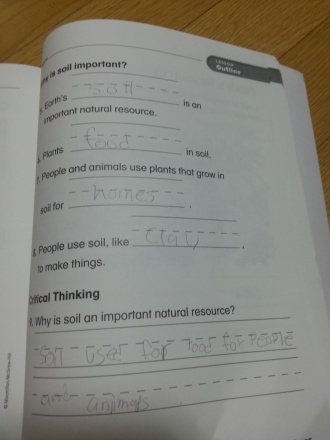 LESSON
Outline
y is soil important?
soil
5. Earth's is an
important natural resource.
food
6. Plants in soil.
7. People and animals use plants that grow in
homes
soil for .
clay
8. People use soil, like ,
to make things.
Critical Thinking
9. Why is soil an important natural resource?
soil used for food for People
and animals